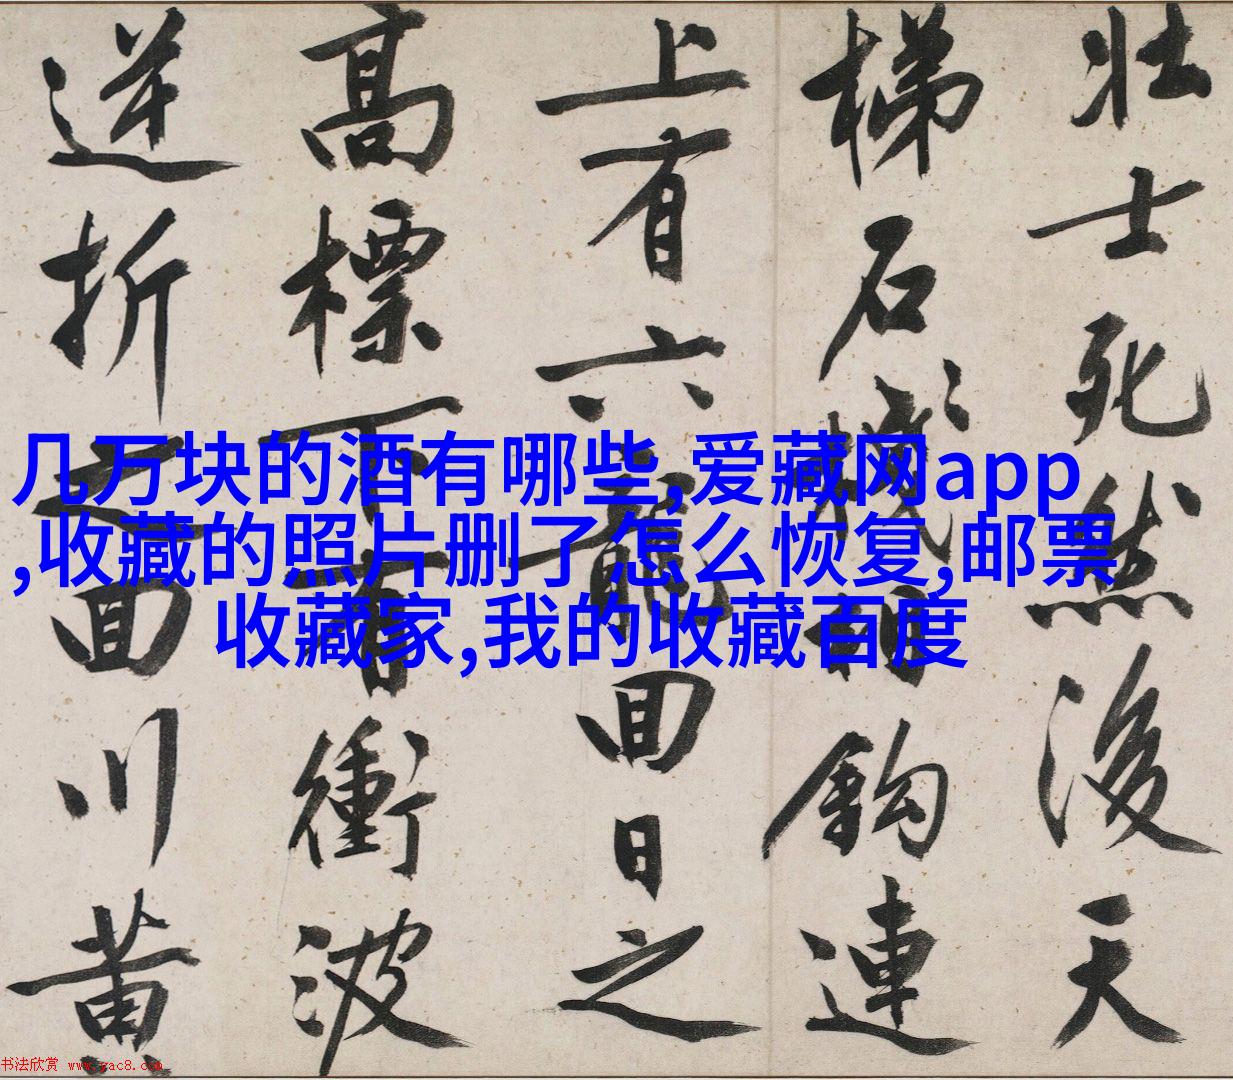 壮士死然後天
梯石棧相鈎連
上有六龍回日之
高標下有衝波
逆折之回川黄
几万块的酒有哪些,爱藏网app
,收藏的照片删了怎么恢复,邮票
收藏家,我的收藏百度
书法欣赏 www.yac8.com